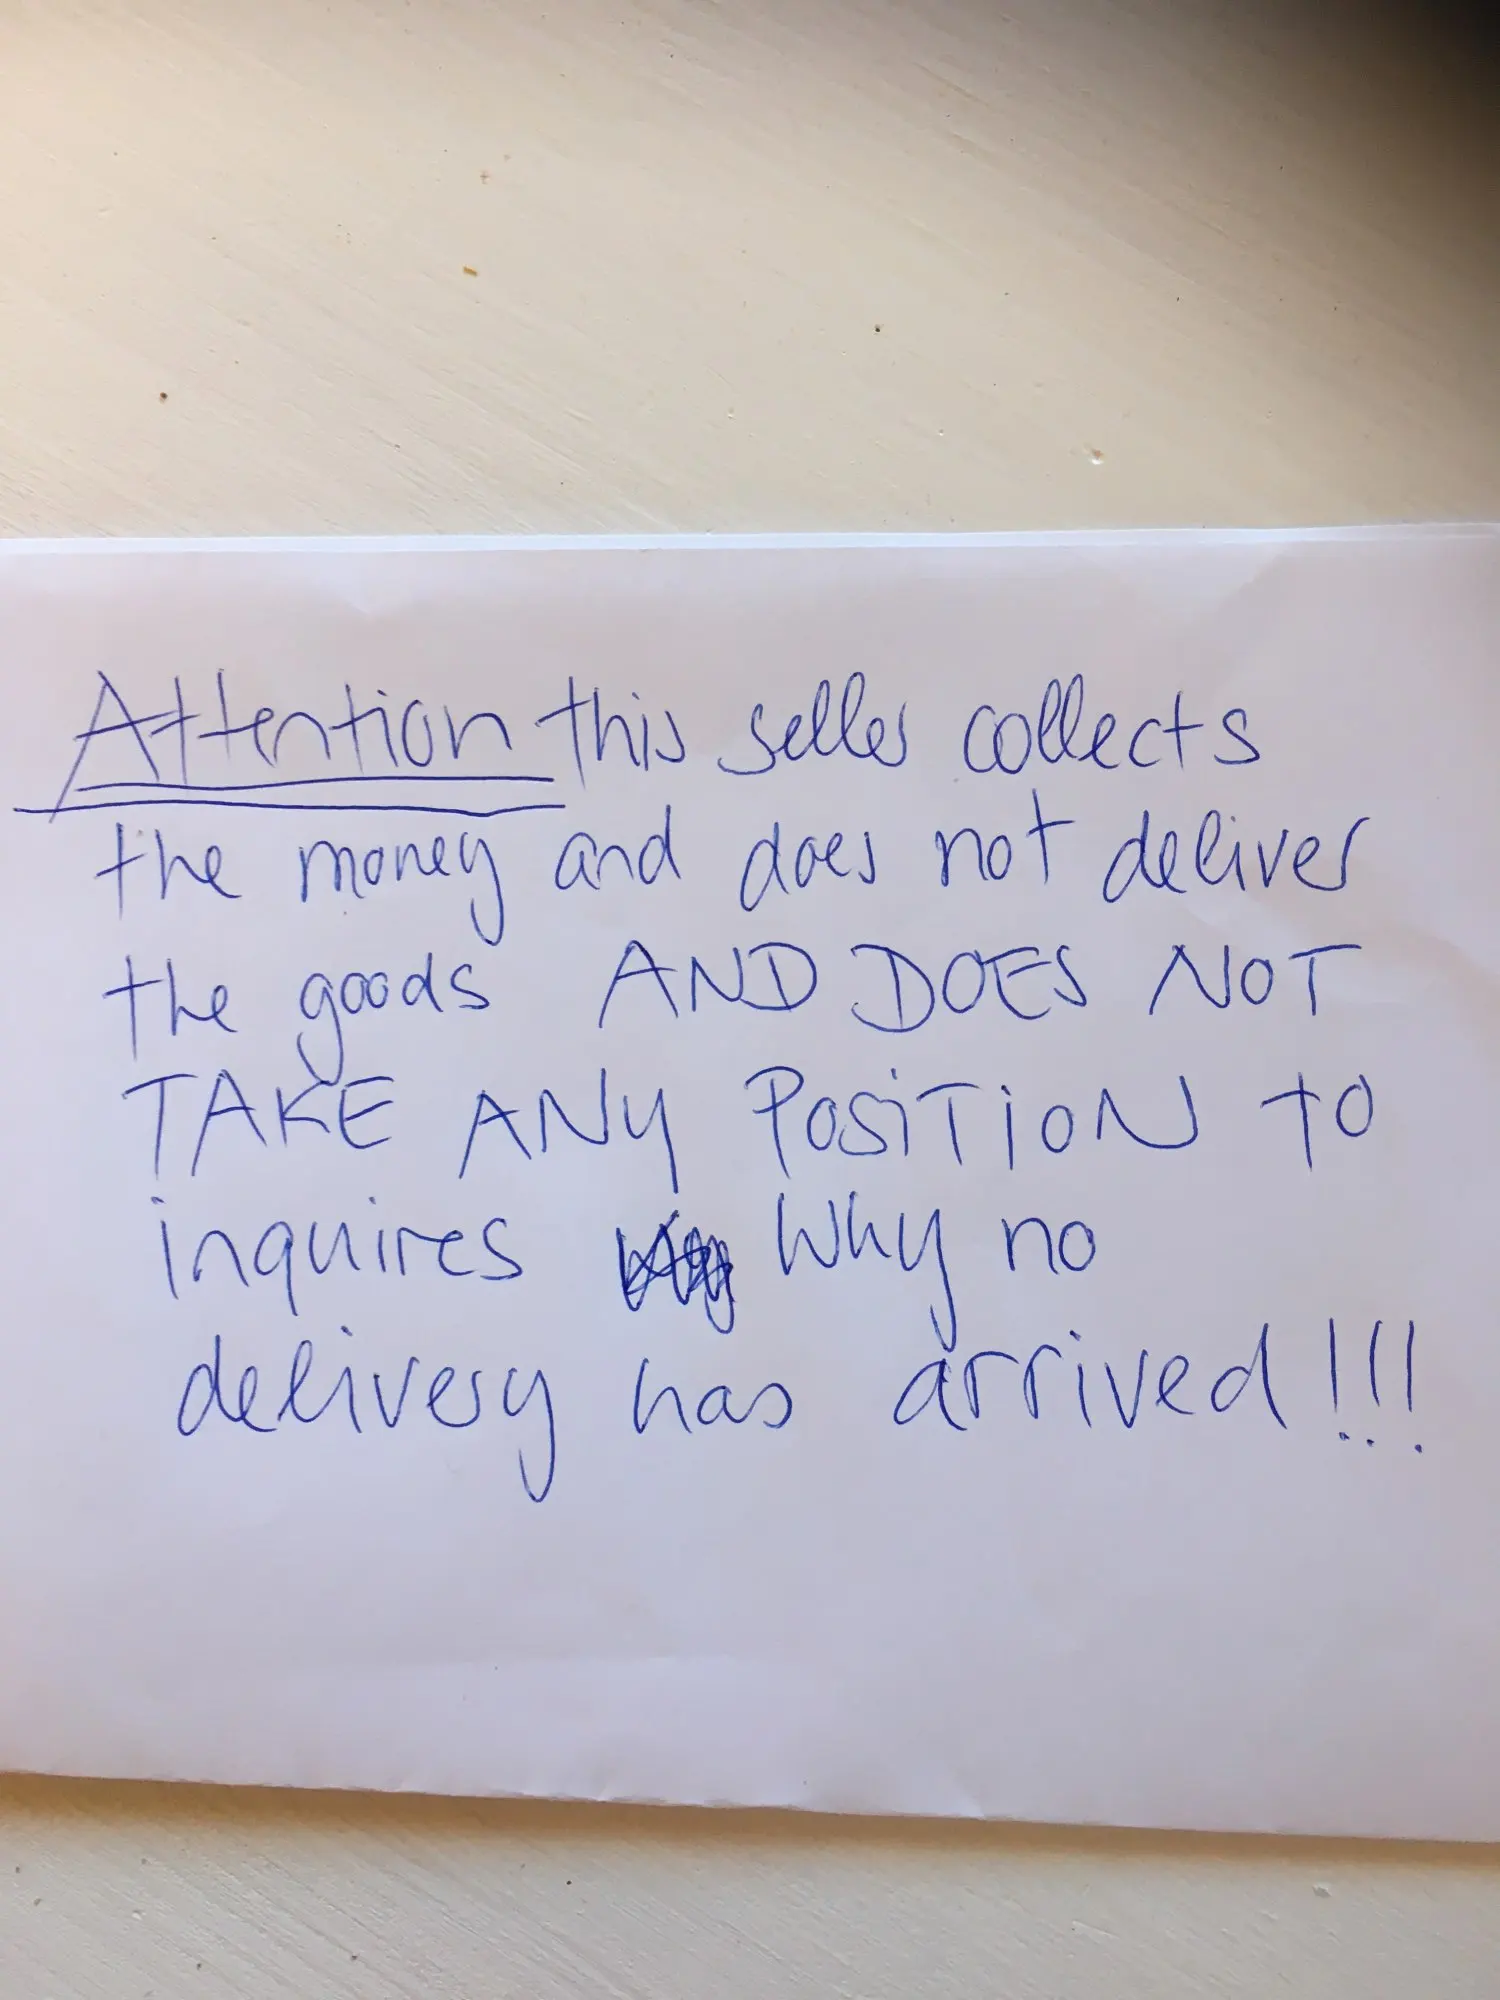 Attention this seller collects
the money and does not deliver
the goods AND DOES NOT
TAKE ANY POSITION TO
inquires why no
delivery has arrived!!!